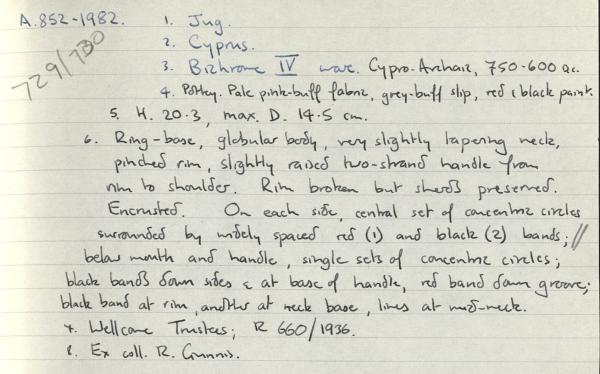 A.852-1982.
729/730
1. Jug.
2. Cyprus.
3. Bichrome IV ware. Cypro-Archaic, 750-600 BC.
4. Pottery. Pale pink-buff fabric, grey-buff slip, red & black paint.
5. H. 20.3, max. D. 14.5 cm.
6. Ring-base, globular body, very slightly tapering neck,
pinched rim, slightly raised two-strand handle from
rim to shoulder. Rim broken but sherds preserved.
Encrusted. On each side, central set of concentric circles
surrounded by widely spaced red (1) and black (2) bands; //
below mouth and handle, single sets of concentric circles;
black bands down sides & at base of handle, red band down groove;
black band at rim, another at neck base, lines at mid-neck.
7. Wellcome Trustees; R 660/1936.
8. Ex coll. R. Gunnis.